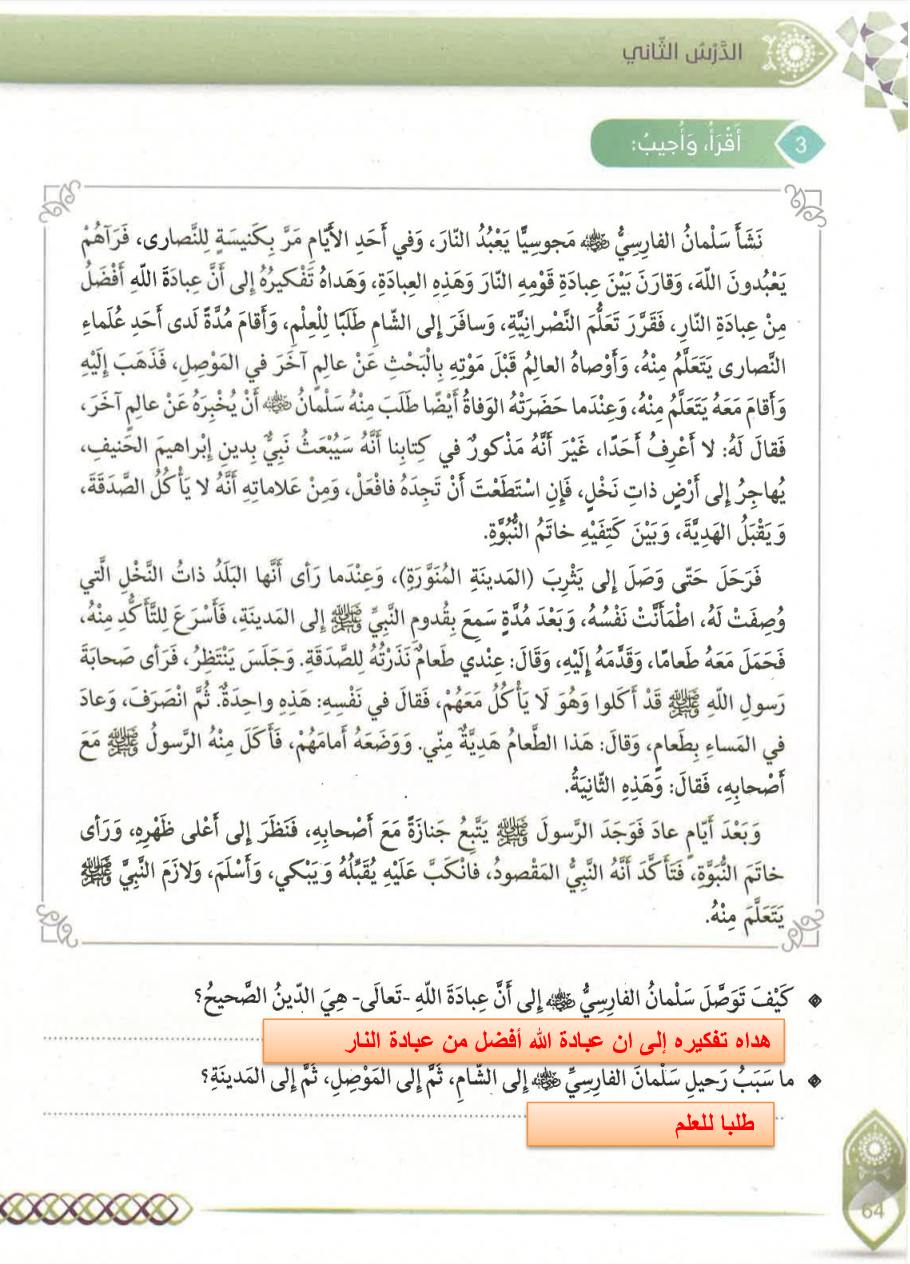 الدَّرْسُ الثّاني
3 أَقْرَأُ، وَأُجيبُ:
نَشَأَ سَلْمانُ الفارِسِيُّ رضي الله عنه مَجوسِيًّا يَعْبُدُ النّارَ، وَفي أَحَدِ الأَيّامِ مَرَّ بِكَنيسَةٍ لِلنَّصارى، فَرَآهُمْ
يَعْبُدونَ اللّهَ، وَقارَنَ بَيْنَ عِبادَةِ قَوْمِهِ النّارَ وَهَذِهِ العِبادَةِ، وَهَداهُ تَفْكيرُهُ إِلى أَنَّ عِبادَةَ اللّهِ أَفْضَلُ
مِنْ عِبادَةِ النّارِ، فَقَرَّرَ تَعَلُّمَ النَّصْرانِيَّةِ، وَسافَرَ إِلى الشّامِ طَلَبًا لِلْعِلْمِ، وَأَقامَ مُدَّةً لَدى أَحَدِ عُلَماءِ
النَّصارى يَتَعَلَّمُ مِنْهُ، وَأَوْصاهُ العالِمُ قَبْلَ مَوْتِهِ بِالْبَحْثِ عَنْ عالِمٍ آخَرَ في المَوْصِلِ، فَذَهَبَ إِلَيْهِ
وَأَقامَ مَعَهُ يَتَعَلَّمُ مِنْهُ، وَعِنْدَما حَضَرَتْهُ الوَفاةُ أَيْضًا طَلَبَ مِنْهُ سَلْمانُ رضي الله عنه أَنْ يُخْبِرَهُ عَنْ عالِمٍ آخَرَ،
فَقالَ لَهُ: لا أَعْرِفُ أَحَدًا، غَيْرَ أَنَّهُ مَذْكورٌ في كِتابِنا أَنَّهُ سَيُبْعَثُ نَبِيٌّ بِدينِ إِبْراهيمَ الحَنيفِ،
يُهاجِرُ إِلى أَرْضٍ ذاتِ نَخْلٍ، فَإِنِ اسْتَطَعْتَ أَنْ تَجِدَهُ فافْعَلْ، وَمِنْ عَلاماتِهِ أَنَّهُ لا يَأْكُلُ الصَّدَقَةَ،
وَيَقْبَلُ الهَدِيَّةَ، وَبَيْنَ كَتِفَيْهِ خاتَمُ النُّبُوَّةِ.
فَرَحَلَ حَتّى وَصَلَ إِلى يَثْرِبَ (المَدينَةِ المُنَوَّرَةِ)، وَعِنْدَما رَأى أَنَّها البَلَدُ ذاتُ النَّخْلِ الَّتي
وُصِفَتْ لَهُ، اطْمَأَنَّتْ نَفْسُهُ، وَبَعْدَ مُدَّةٍ سَمِعَ بِقُدومِ النَّبِيِّ ﷺ إِلى المَدينَةِ، فَأَسْرَعَ لِلتَّأَكُّدِ مِنْهُ،
فَحَمَلَ مَعَهُ طَعامًا، وَقَدَّمَهُ إِلَيْهِ، وَقالَ: عِنْدي طَعامٌ نَذَرْتُهُ لِلصَّدَقَةِ. وَجَلَسَ يَنْتَظِرُ، فَرَأى صَحابَةَ
رَسولِ اللّهِ ﷺ قَدْ أَكَلوا وَهُوَ لَا يَأْكُلُ مَعَهُمْ، فَقالَ في نَفْسِهِ: هَذِهِ واحِدَةٌ. ثُمَّ انْصَرَفَ، وَعادَ
في المَساءِ بِطَعامٍ، وَقالَ: هَذا الطَّعامُ هَدِيَّةٌ مِنّي. وَوَضَعَهُ أَمامَهُمْ، فَأَكَلَ مِنْهُ الرَّسولُ ﷺ مَعَ
أَصْحابِهِ، فَقالَ: وَهَذِهِ الثّانِيَةُ.
وَبَعْدَ أَيّامٍ عادَ فَوَجَدَ الرَّسولَ ﷺ يَتْبَعُ جَنازَةً مَعَ أَصْحابِهِ، فَنَظَرَ إِلى أَعْلى ظَهْرِهِ، وَرَأى
خاتَمَ النُّبُوَّةِ، فَتَأَكَّدَ أَنَّهُ النَّبِيُّ المَقْصودُ، فانْكَبَّ عَلَيْهِ يُقَبِّلُهُ وَيَبْكي، وَأَسْلَمَ، وَلازَمَ النَّبِيَّ ﷺ
يَتَعَلَّمُ مِنْهُ.
كَيْفَ تَوَصَّلَ سَلْمانُ الفارِسِيُّ رضي الله عنه إِلى أَنَّ عِبادَةَ اللّهِ -تَعالَى- هِيَ الدّينُ الصَّحيحُ؟
هداه تفكيره إلى ان عبادة الله أفضل من عبادة النار
ما سَبَبُ رَحيلِ سَلْمانَ الفارِسِيِّ رضي الله عنه إِلى الشّامِ، ثُمَّ إِلى المَوْصِلِ، ثُمَّ إِلى المَدينَةِ؟
طلبا للعلم
64